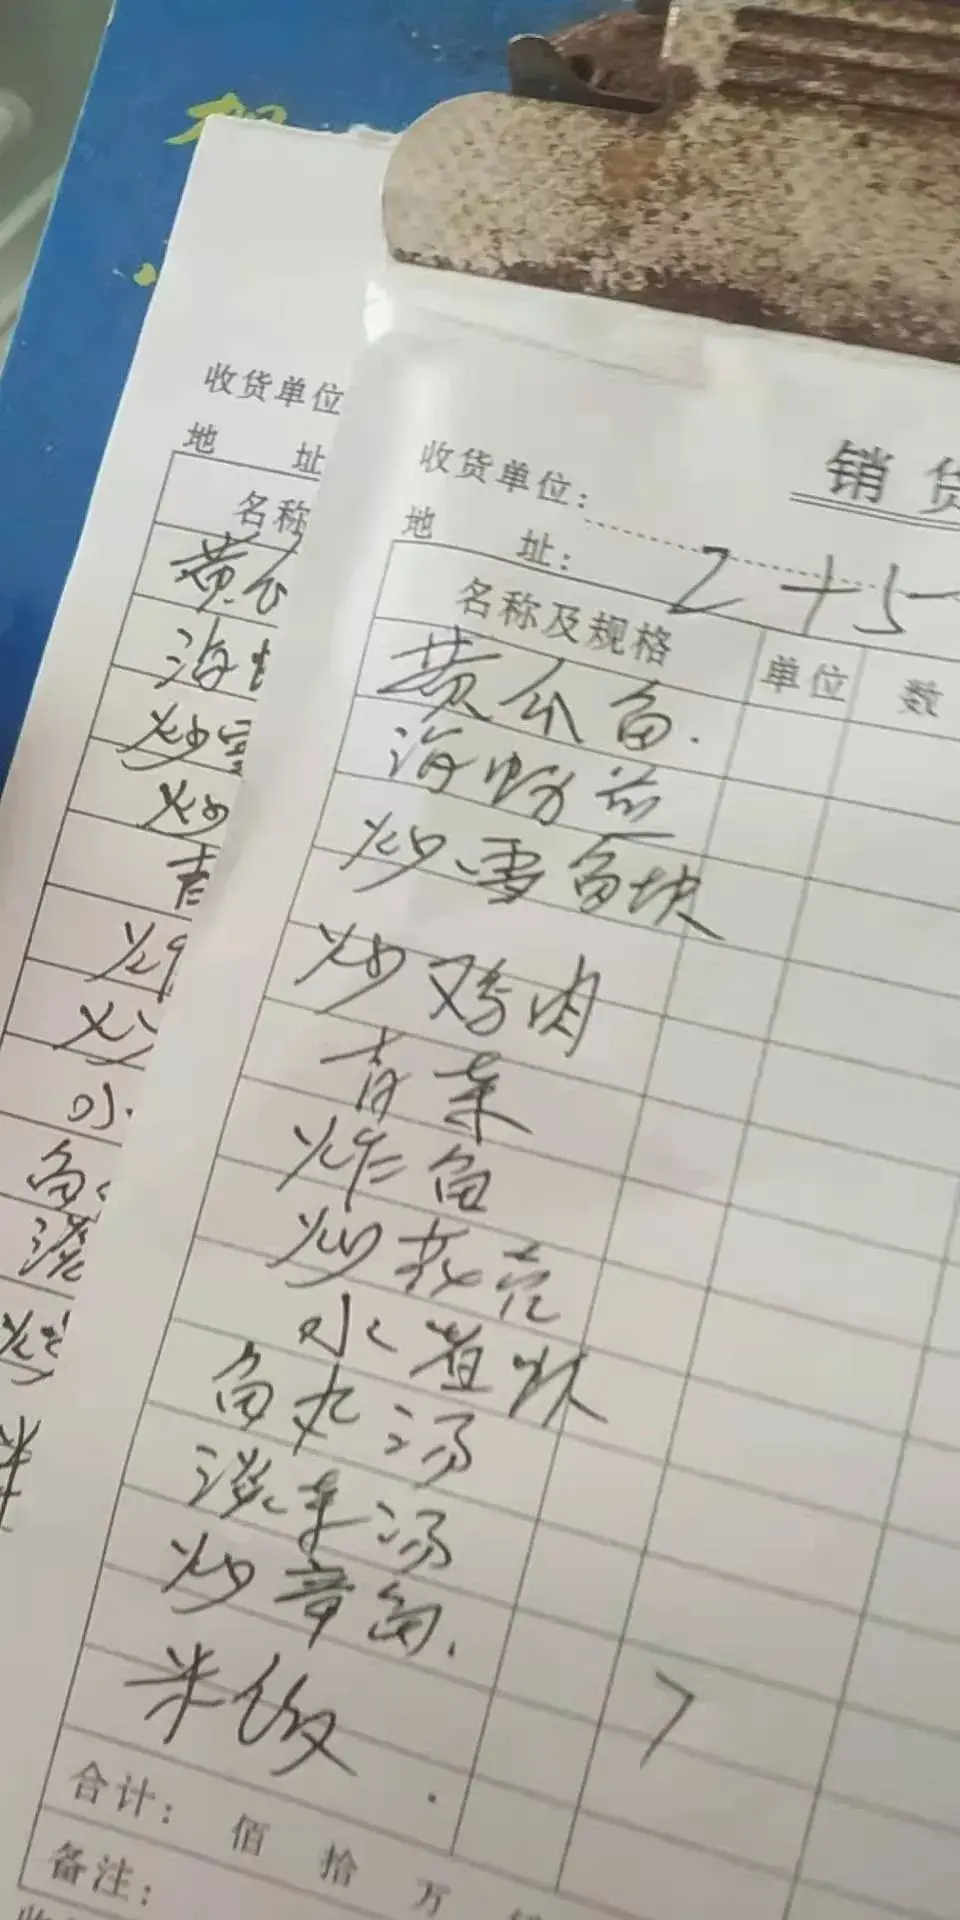 收货单位
地 址
名称
黄瓜
海
炒雪
炒
青
炸
炒
水
鱼
淡
炒
米
销货
收货单位:
地 址: 2+5
名称及规格 单位 数
黄瓜鱼.
海
炒雪鱼块
炒鸡肉
青菜
炸鱼
炒花
水煮
鱼丸汤
淡菜汤
炒章鱼.
米饭 7
合计: 佰 拾 万
备注: